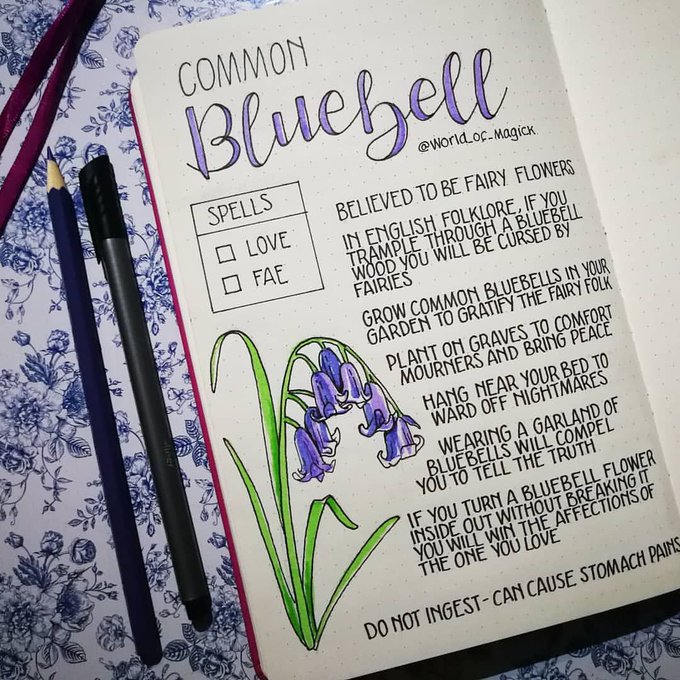 COMMON
Bluebell
@WORLD_OF_MAGICK
SPELLS
LOVE
FAE
BELIEVED TO BE FAIRY FLOWERS
IN ENGLISH FOLKLORE, IF YOU
TRAMPLE THROUGH A BLUEBELL
WOOD YOU WILL BE CURSED BY
FAIRIES
GROW COMMON BLUEBELLS IN YOUR
GARDEN TO GRATIFY THE FAIRY FOLK
PLANT ON GRAVES TO COMFORT
MOURNERS AND BRING PEACE
HANG NEAR YOUR BED TO
WARD OFF NIGHTMARES
WEARING A GARLAND OF
BLUEBELLS WILL COMPEL
YOU TO TELL THE TRUTH
IF YOU TURN A BLUEBELL FLOWER
INSIDE OUT WITHOUT BREAKING IT
YOU WILL WIN THE AFFECTIONS OF
THE ONE YOU LOVE
DO NOT INGEST - CAN CAUSE STOMACH PAINS